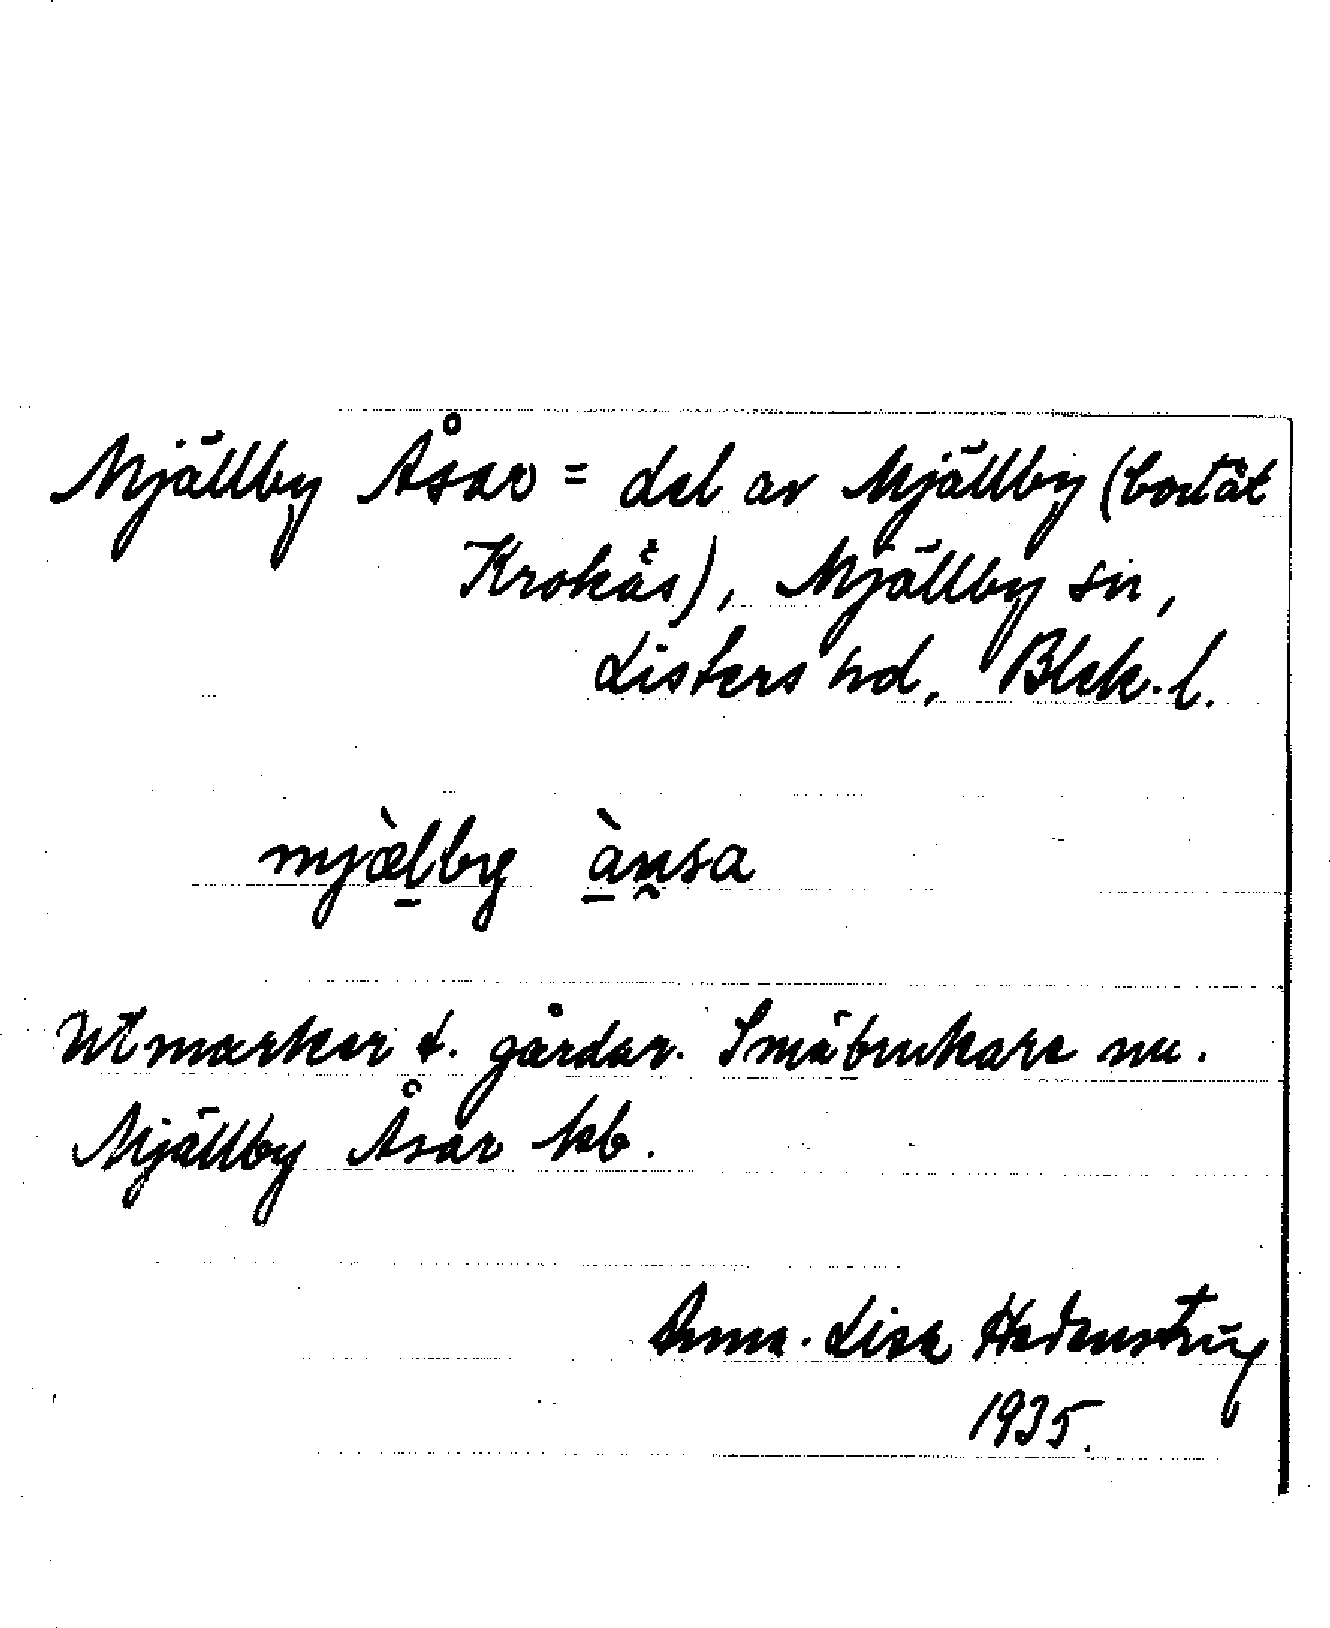 Mjällby Åsar = del av Mjällby (bortåt
Krokås), Mjällby sn,
Listers hd, Blek. l.
mjæ̀lby
Utmarker t. gårdar. Småbrukare nu.
Mjällby Åsar kb.
Anna-Lisa Hedenstrüg
1935.